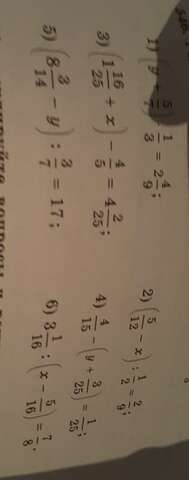 1) (y + 5/7) : 1/3 = 2 4/9;
2) (5/12 − x) : 1/2 = 2/9;
3) (1 16/25 + x) − 4/5 = 4 2/25;
4) 4/15 − (y + 3/25) = 1/25;
5) (8 3/14 − y) : 3/7 = 17;
6) 3 1/16 : (x − 5/16) = 7/8;